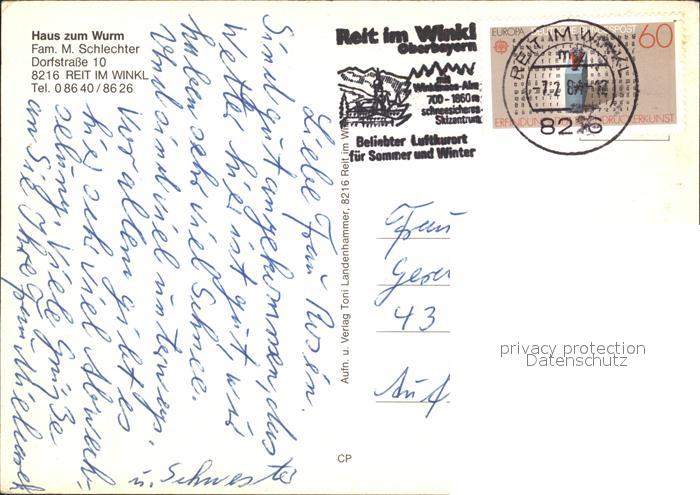 Haus zum Wurm
Fam. M. Schlechter
Dorfstraße 10
8216 REIT IM WINKL
Tel. 0 86 40 / 86 26
Reit im Winkl
Oberbayern
mit
Winklmoos-Alm
700 - 1860 m
schneesicheres
Skizentrum
Beliebter Luftkurort
für Sommer und Winter
EUROPA
POST
60
ERFINDUNG
DRUCKERKUNST
REIT IM WINKL
8216
Liebe Frau Rosin.
Sind gut angekommen, das
Wetter hier ist gut, wir
haben sehr viel Schnee.
Und sind viel unterwegs.
Vor allem gibt es
hier sehr viel Abwech-
selung. Viele Grüße
an Sie Ihre Frau
u. Schwester
Aufn. u. Verlag Toni Landenhammer, 8216 Reit im Wi
Frau
43
Auf
CP
privacy protection
Datenschutz